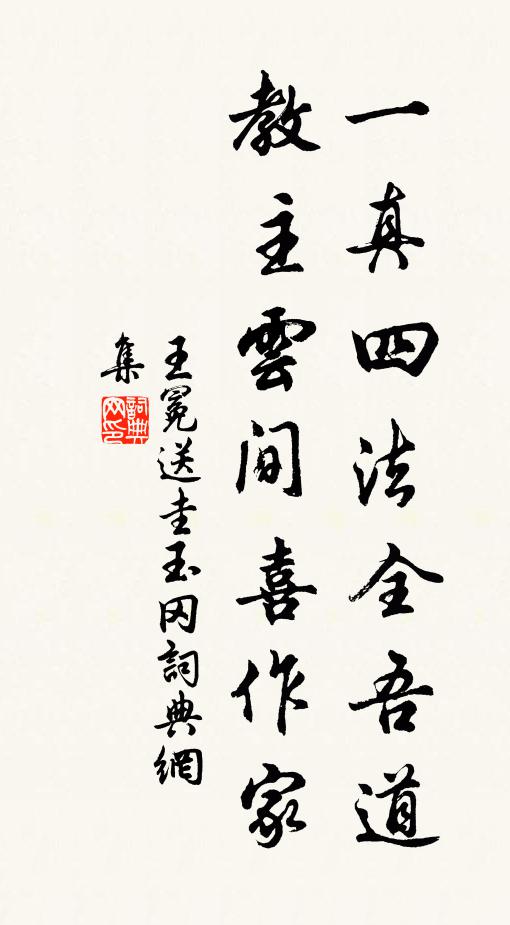 一真四法全吾道
教主雲間喜作家
王冕送圭玉冈詞典網
集
詞典网印